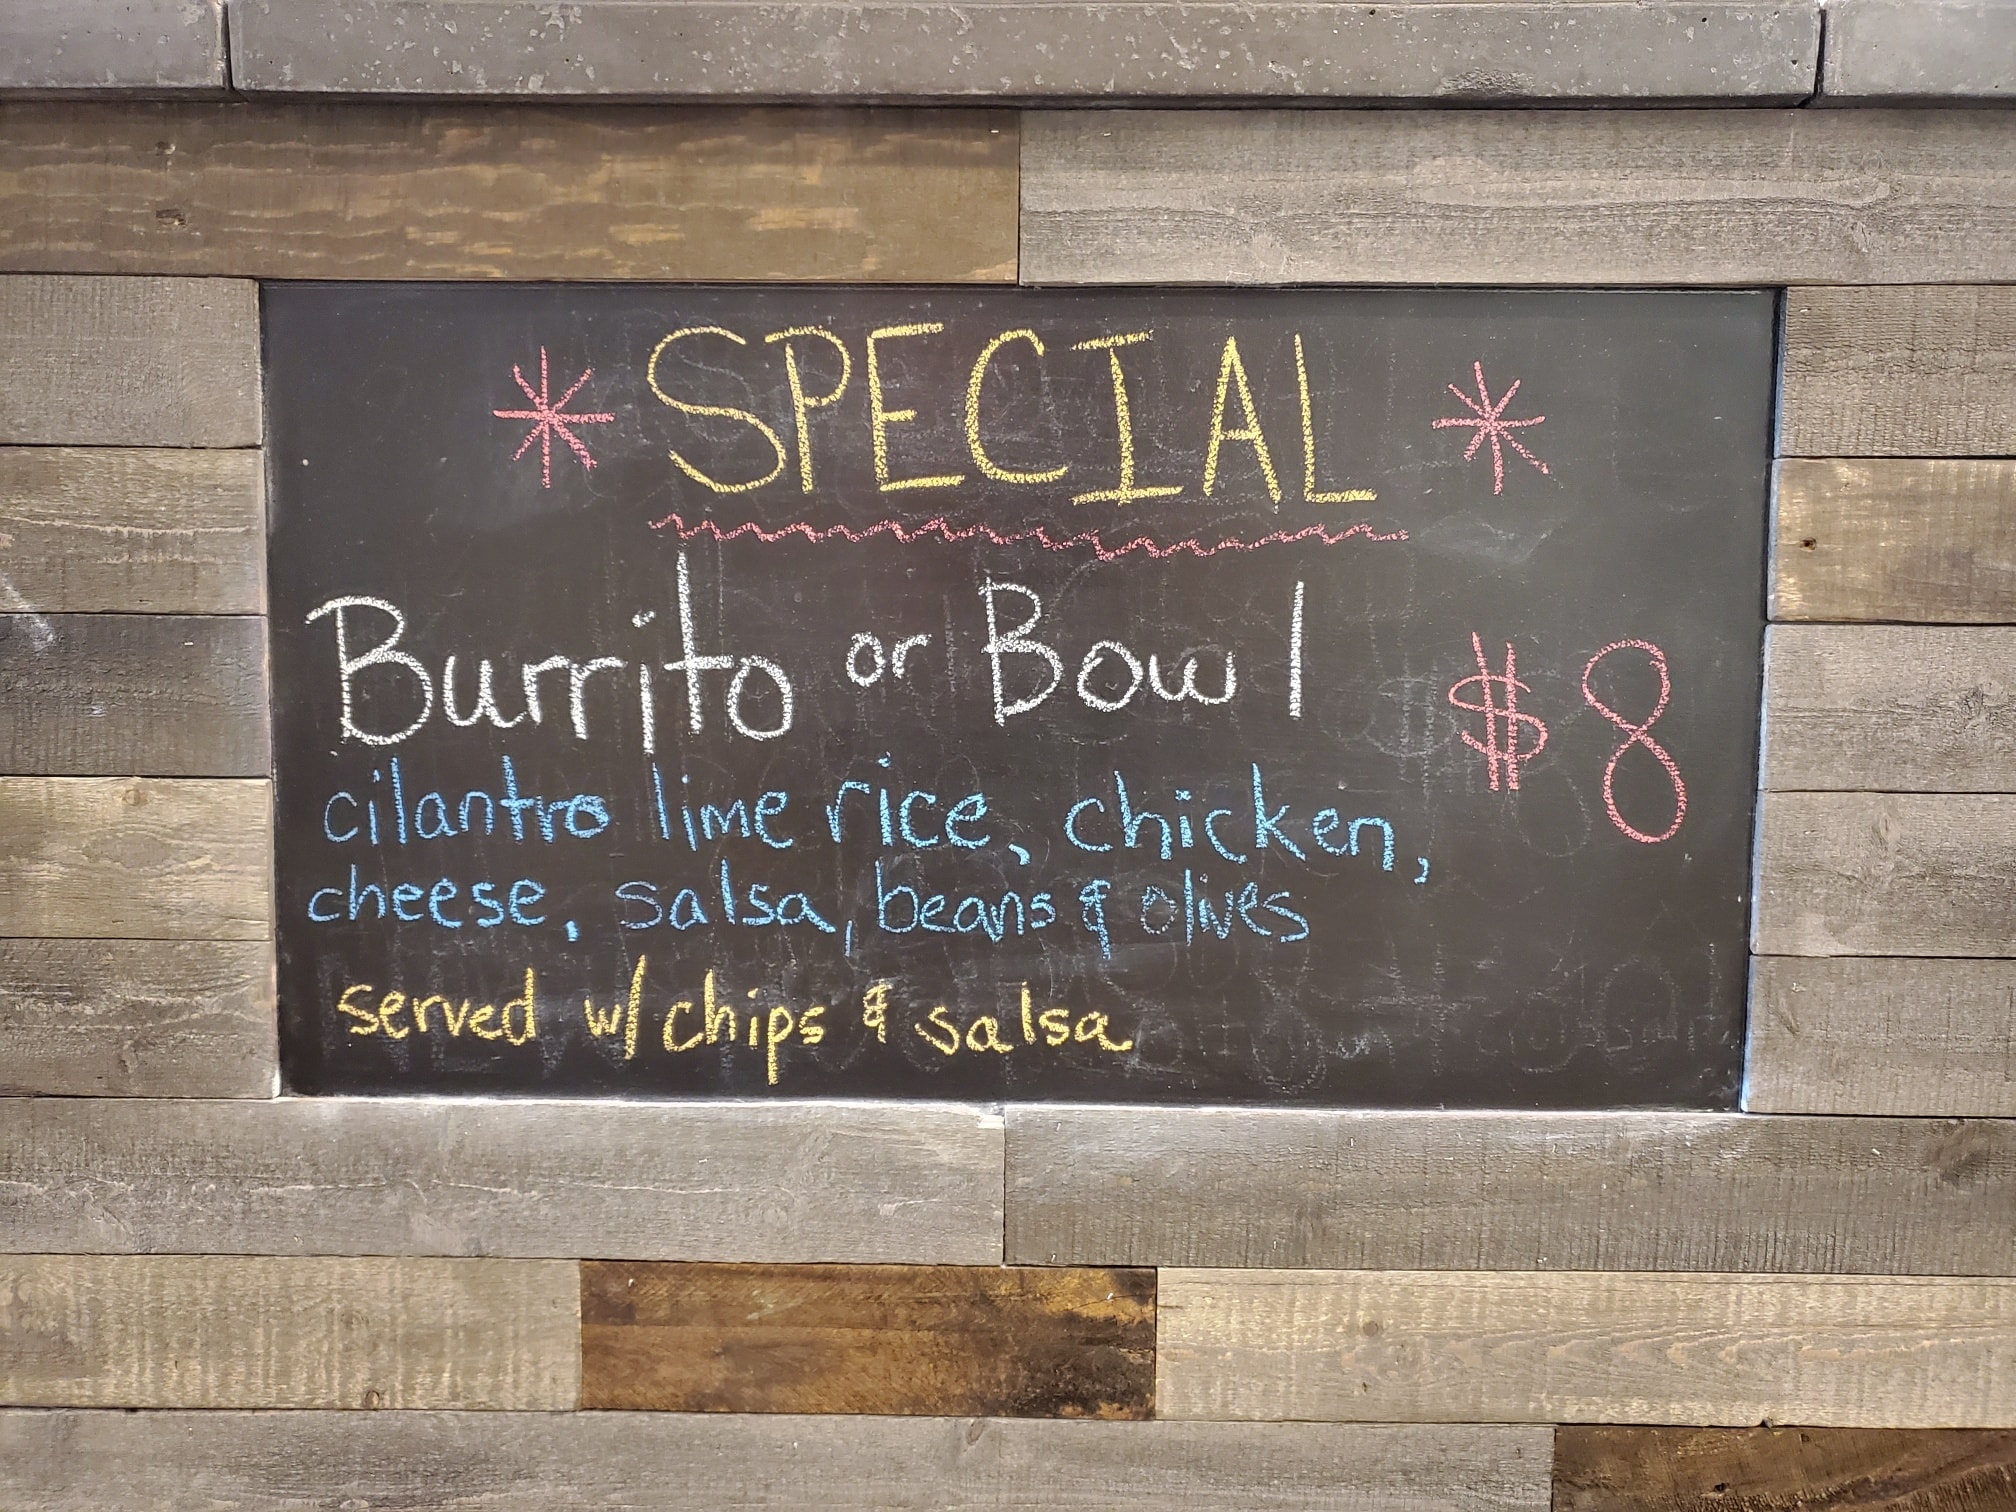 * SPECIAL *
Burrito or Bowl $8
cilantro lime rice, chicken,
cheese, salsa, beans & olives
served w/ chips & salsa